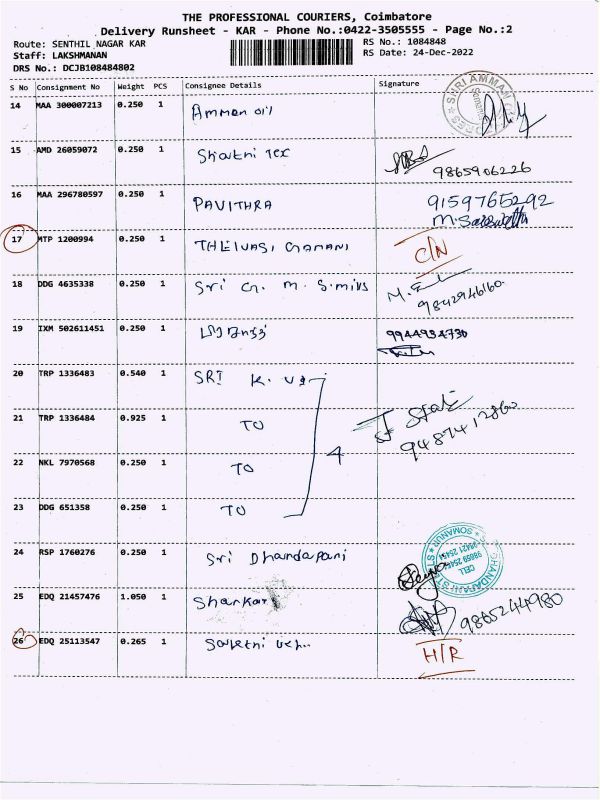 THE PROFESSIONAL COURIERS, Coimbatore
Delivery Runsheet - KAR - Phone No.:0422-3505555 - Page No.:2
Route: SENTHIL NAGAR KAR RS No.: 1084848
Staff: LAKSHMANAN RS Date: 24-Dec-2022
DRS No.: DCJB108484802
S No Consignment No Weight PCS Consignee Details Signature
14 MAA 300007213 0.250 1 Amman oil
15 AMD 26059072 0.250 1 Shakthi Tex 9865906226
16 MAA 296780597 0.250 1 PAVITHRA 9159765292
17 MTP 1200994 0.250 1 C/N
18 DDG 4635338 0.250 1 Sri G. M. 9842946160
19 IXM 502611451 0.250 1 9944934730
20 TRP 1336483 0.540 1 SRI K.
21 TRP 1336484 0.925 1 TO 4 9487412860
22 NKL 7970568 0.250 1 TO
23 DDG 651358 0.250 1 TO
24 RSP 1760276 0.250 1 Sri Dhandapani
25 EDQ 21457476 1.050 1 Shankar 9865244980
26 EDQ 25113547 0.265 1 H/R